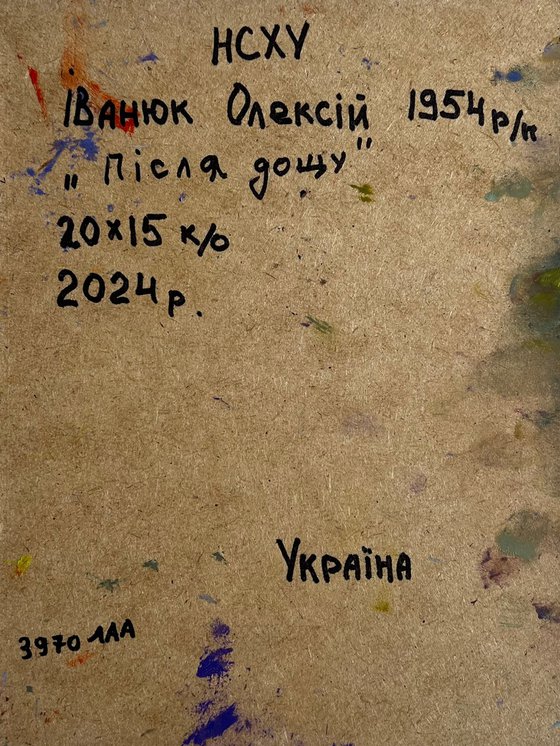 НСХУ
Іванюк Олексій 1954 р/н
„ Після дощу"
20х15 к/о
2024 р.
Україна
3970 ЛЛА